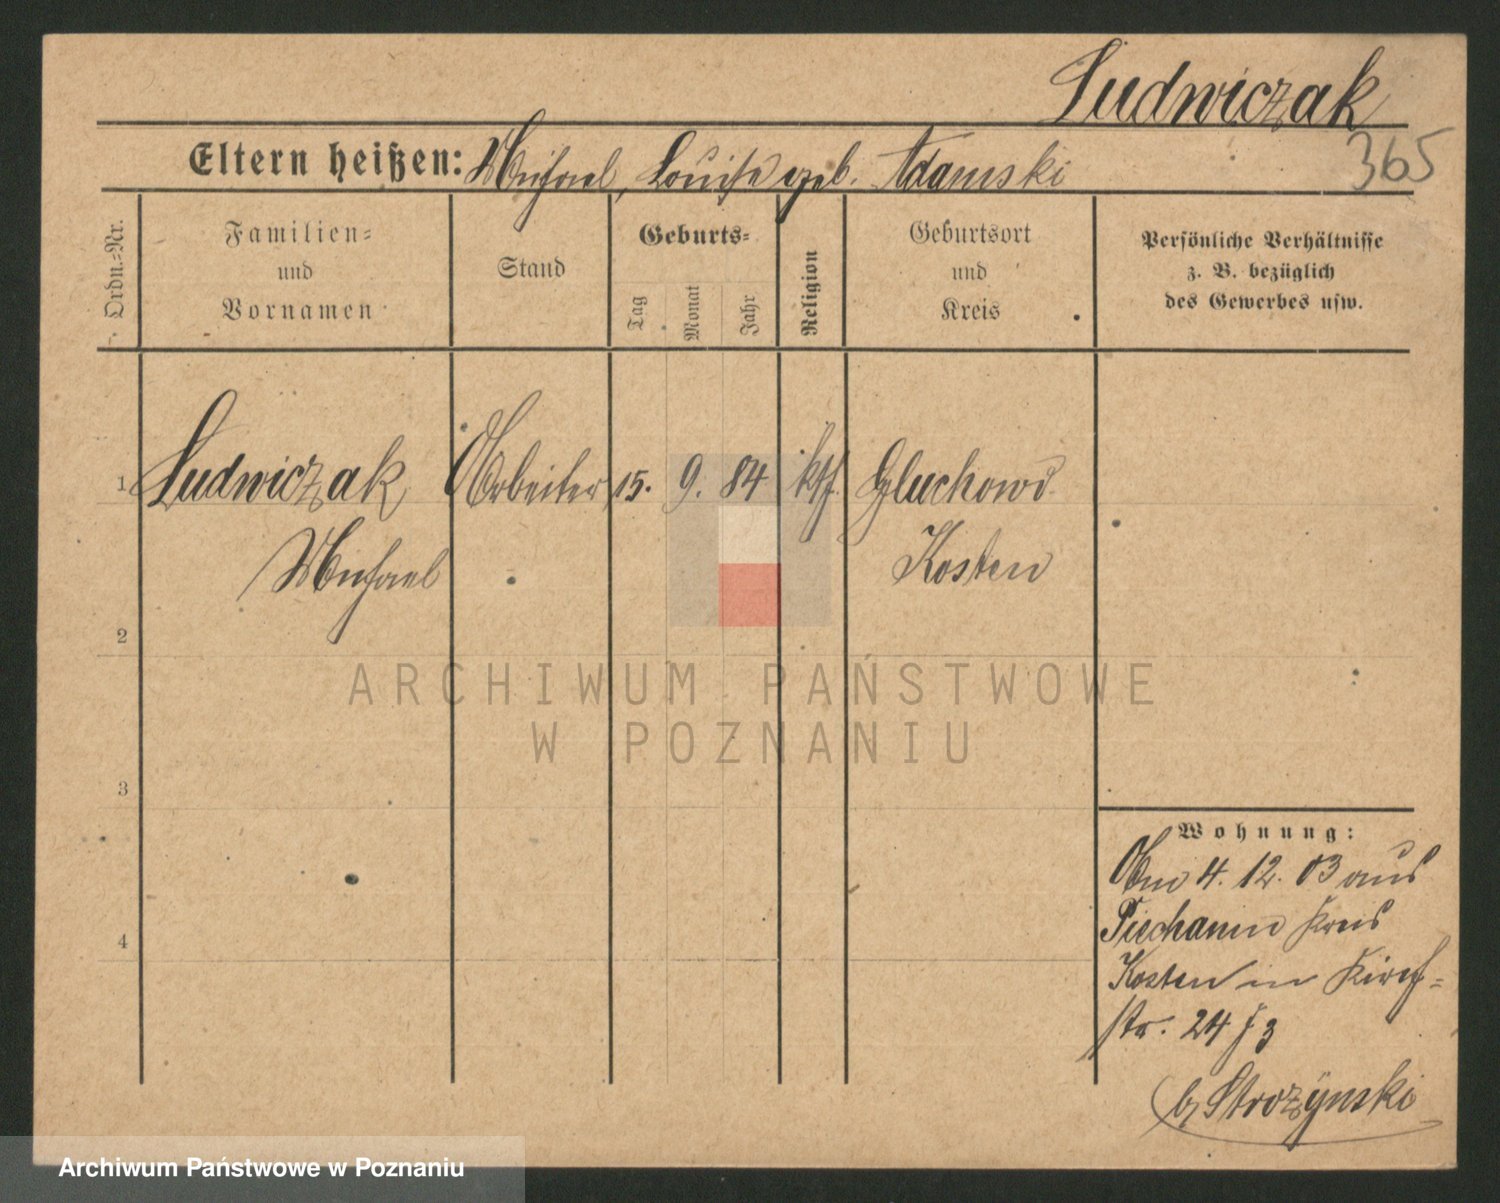 Ludwiczak
365
Eltern heißen: Michael, Louise geb. Adamski
Ordn.-Nr.
Familien-
und
Vornamen
Stand
Geburts-
Tag
Monat
Jahr
Religion
Geburtsort
und
Kreis
Persönliche Verhältnisse
z. B. bezüglich
des Gewerbes usw.
1 Ludwiczak Arbeiter 15. 9. 84 kth. Gluchowo
Michael Kosten
2
ARCHIWUM PAŃSTWOWE
W POZNANIU
3
Wohnung:
Am 4. 12. 03 aus
Piechanin Kreis
4
Kosten in Kirch-
str. 24 I 3
b/ Strozÿnski
Archiwum Państwowe w Poznaniu